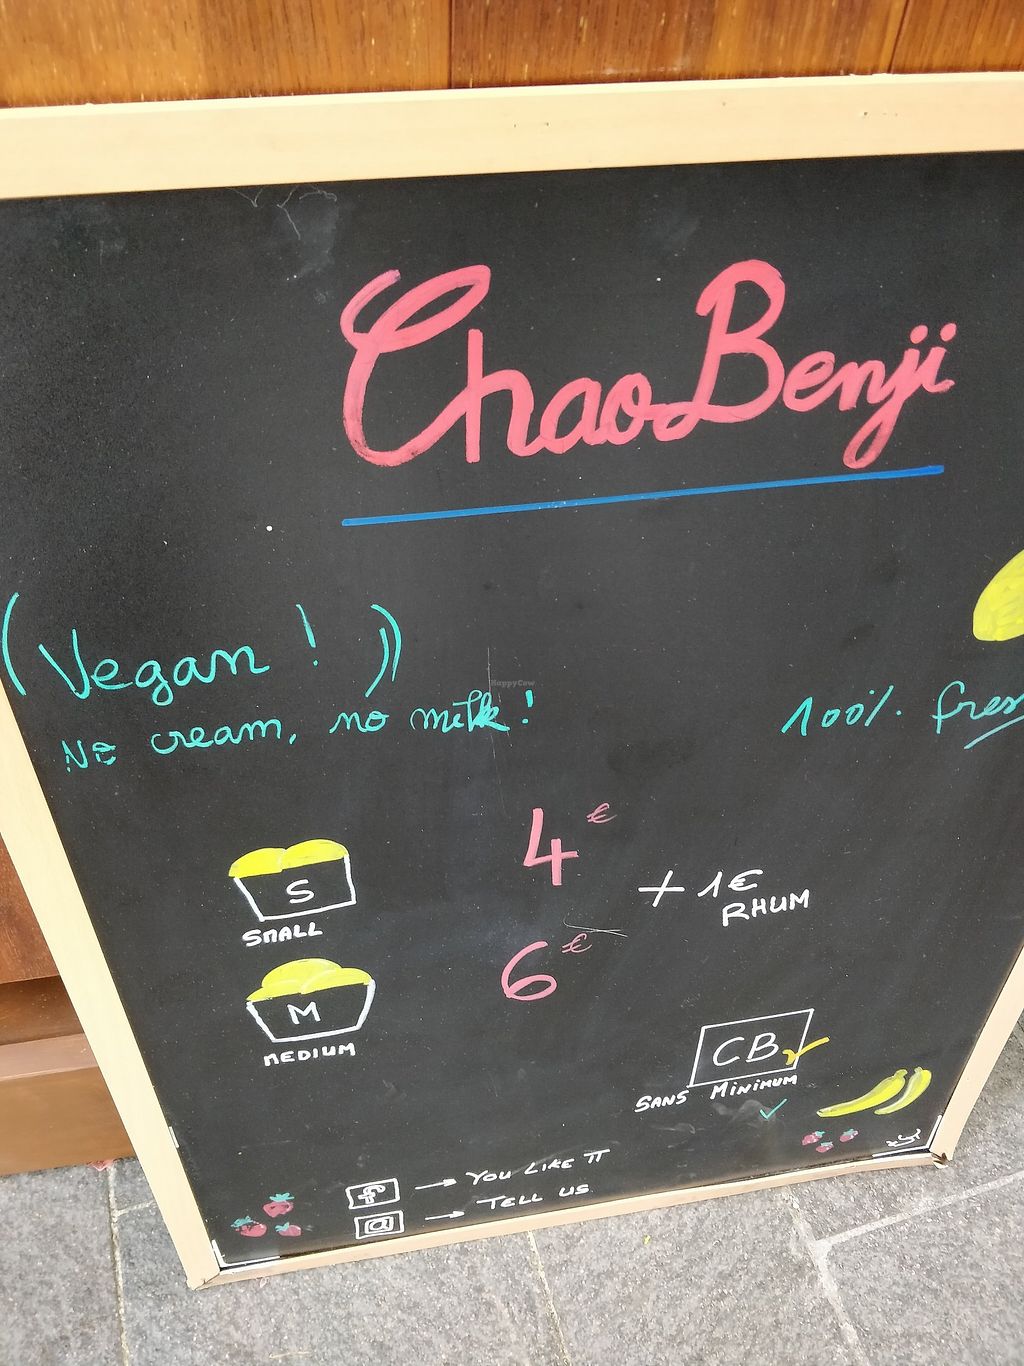 ChaoBenji
(Vegan ! ))
No cream, no milk !
100% fres
HappyCow
S
SMALL
4€
+ 1€
RHUM
M
MEDIUM
6€
CB
SANS MINIMUM
f → YOU LIKE IT
@ → TELL US